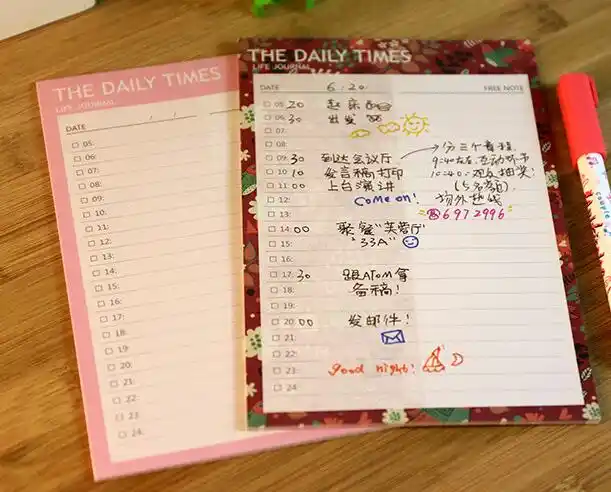 THE DAILY TIMES
LIFE JOURNAL
DATE / /
05:
06:
07:
08:
09:
10:
11:
12:
13:
14:
15:
16:
17:
18:
19:
20:
21:
22:
23:
24:
THE DAILY TIMES
LIFE JOURNAL
DATE 6.20. FREE NOTE
05:20 起床
06:30 出发
07:
08:
09:30 到达会议厅
10:10 发言稿打印
11:00 上台演讲
12: Come on!
13:
14:00 聚餐"芙蓉厅"
15: "33A"
16:
17:30 跟ATOM拿
18: 备稿!
19:
20:00 发邮件!
21:
22:
23: good night!
24:
分三个看程,
9:40左右,互动环节
10:40.观众抽奖!
(5名)
场外热线
6972996